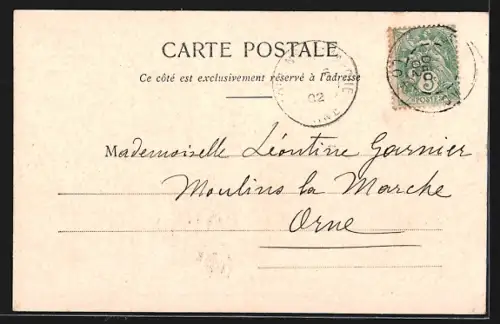 CARTE POSTALE
Ce côté est exclusivement réservé à l'adresse
02
5
POSTES
Mademoiselle Léontine Garnier
Moulins la Marche
Orne